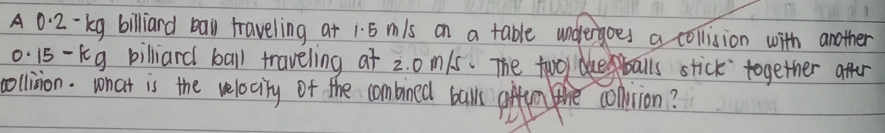 A 0.2-kg billiard ball traveling at 1.5 m/s on a table undergoes a collision with another
0.15-kg billiard ball traveling at 2.0 m/s. The two balls stick together after
collision. What is the velocity of the combined balls after the collision?